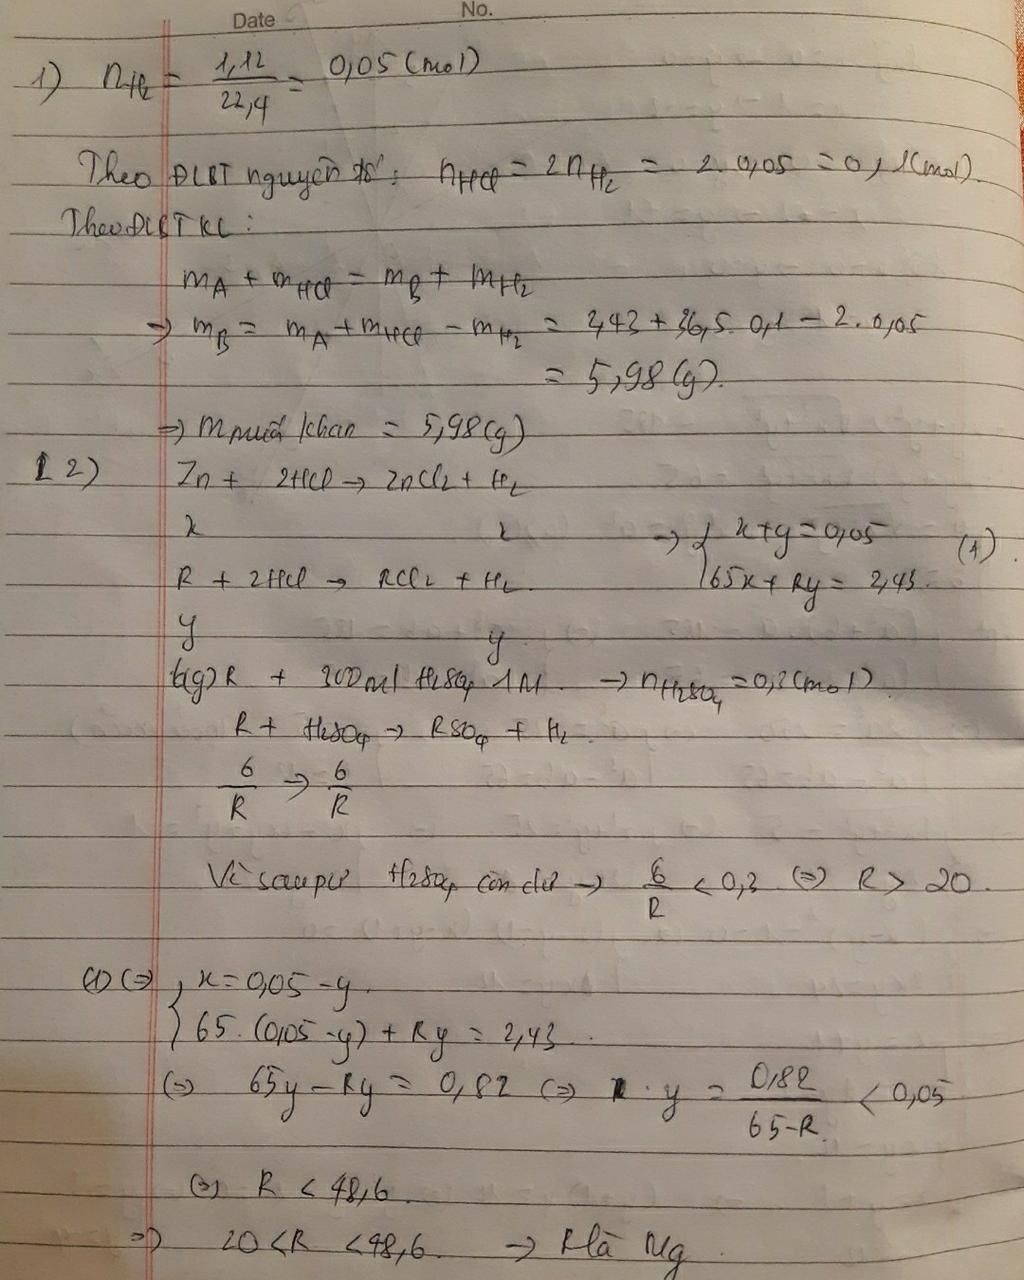 Date No.
1) nH2 = 1,12/22,4 = 0,05 (mol)
Theo ĐLBT nguyên tố: nHCl = 2nH2 = 2.0,05 = 0,1(mol).
Theo ĐLBTKL:
mA + mHCl = mB + mH2
=> mB = mA + mHCl - mH2 = 2,43 + 36,5.0,1 - 2.0,05
= 5,98(g).
=> m muối khan = 5,98(g)
2) Zn + 2HCl → ZnCl2 + H2
x x → { x+y = 0,05 (1)
R + 2HCl → RCl2 + H2 65x + Ry = 2,43.
y y
6(g)R + 300ml H2SO4 1M. → nH2SO4 = 0,3(mol).
R + H2SO4 → RSO4 + H2.
6/R → 6/R
Vì sau pư H2SO4 còn dư → 6/R < 0,3 (=) R > 20.
(1) (=) { x = 0,05 - y.
65.(0,05-y) + Ry = 2,43.
(=) 65y - Ry = 0,82 (=) y = 0,82/65-R < 0,05
(=) R < 48,6.
=> 20 < R < 48,6. → R là Mg.